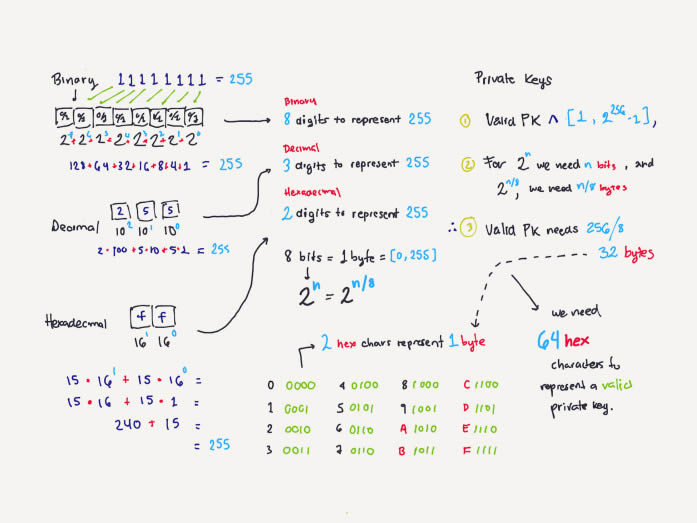 Binary 11111111 = 255
0/1 0/1 0/1 0/1 0/1 0/1 0/1 0/1
2⁷+2⁶+2⁵+2⁴+2³+2²+2¹+2⁰
128+64+32+16+8+4+1 = 255
Decimal
2 5 5
10² 10¹ 10⁰
2·100+5·10+5·1 = 255
Hexadecimal
f f
16¹ 16⁰
15 • 16¹ + 15 • 16⁰ =
15 • 16 + 15 • 1 =
240 + 15 =
= 255
Binary
8 digits to represent 255
Decimal
3 digits to represent 255
Hexadecimal
2 digits to represent 255
8 bits = 1 byte = [0,255]
2ⁿ = 2ⁿ/⁸
2 hex chars represent 1 byte
0 0000 4 0100 8 1000 C 1100
1 0001 5 0101 9 1001 D 1101
2 0010 6 0110 A 1010 E 1110
3 0011 7 0110 B 1011 F 1111
Private Keys
① Valid PK ∧ [1, 2²⁵⁶-1],
② For 2ⁿ we need n bits, and
2ⁿ/⁸, we need n/8 bytes
∴ ③ Valid PK needs 256/8
32 bytes
we need
64 hex
characters to
represent a valid
private key.